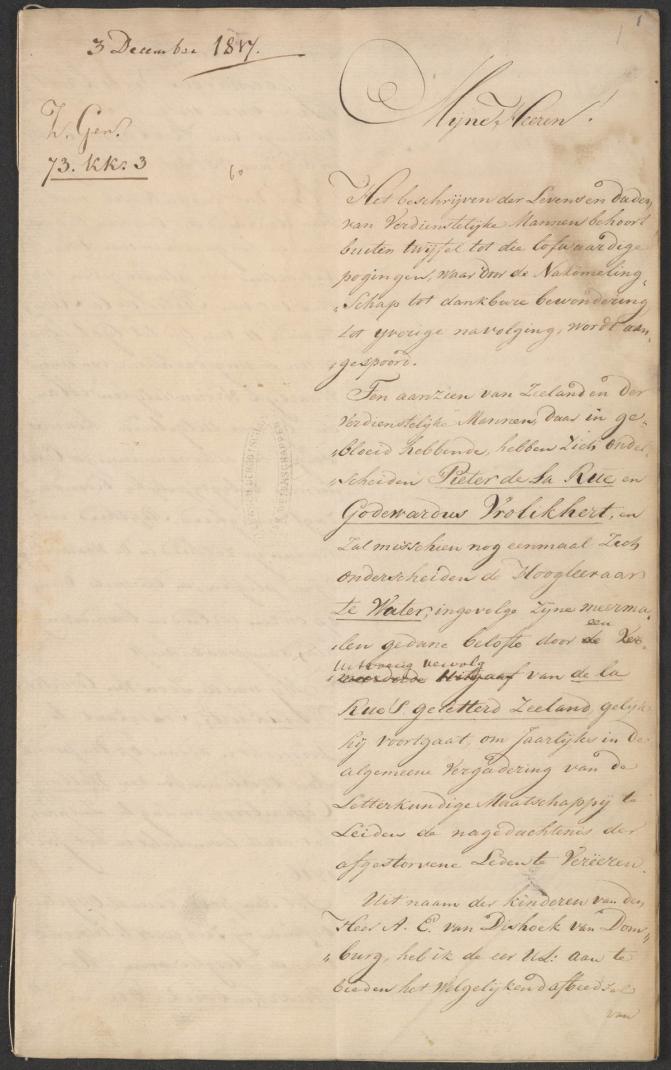 1
3 December 1817.
Mijne Heeren!
Z. Gen.
73. KK: 3
60
Het beschrijven der Levens en daden,
van Verdienstelijke Mannen behoort
buiten twijffel tot die lofwaardige
pogingen, waar door de Nakomeling,
„schap tot dankbare bewondering,
tot yverige navolging, wordt aan,
„gespoord.
Ten aanzien van Zeeland en der
Verdienstelijke Mannen, daar in ge„
„bloeid hebbende, hebben Zich onder
„scheiden Pieter de la Rue en
Godewardus Vrolikhert, en
Zal misschien nog eenmaal Zich
onderscheiden de Hoogleeraar
te Water, ingevolge Zyne meerma„
een
„len gedane belofte door de Ver„
uitvoerig vervolg
„meerderde Uitgaaf van de la
Rue's geletterd Zeeland, gelijk
hij voortgaat, om Jaarlijks in de
algemeene Vergadering van de
Letterkundige Maatschappij te
Leiden de nagedachtenis der
afgestorvene Leden te Verëeren.
Uit naam der kinderen van den
Heer A. E. van Dishoek van Dom„
„burg, heb ik de eer UL: aan te
bieden het welgelijkend afbeedsel
van